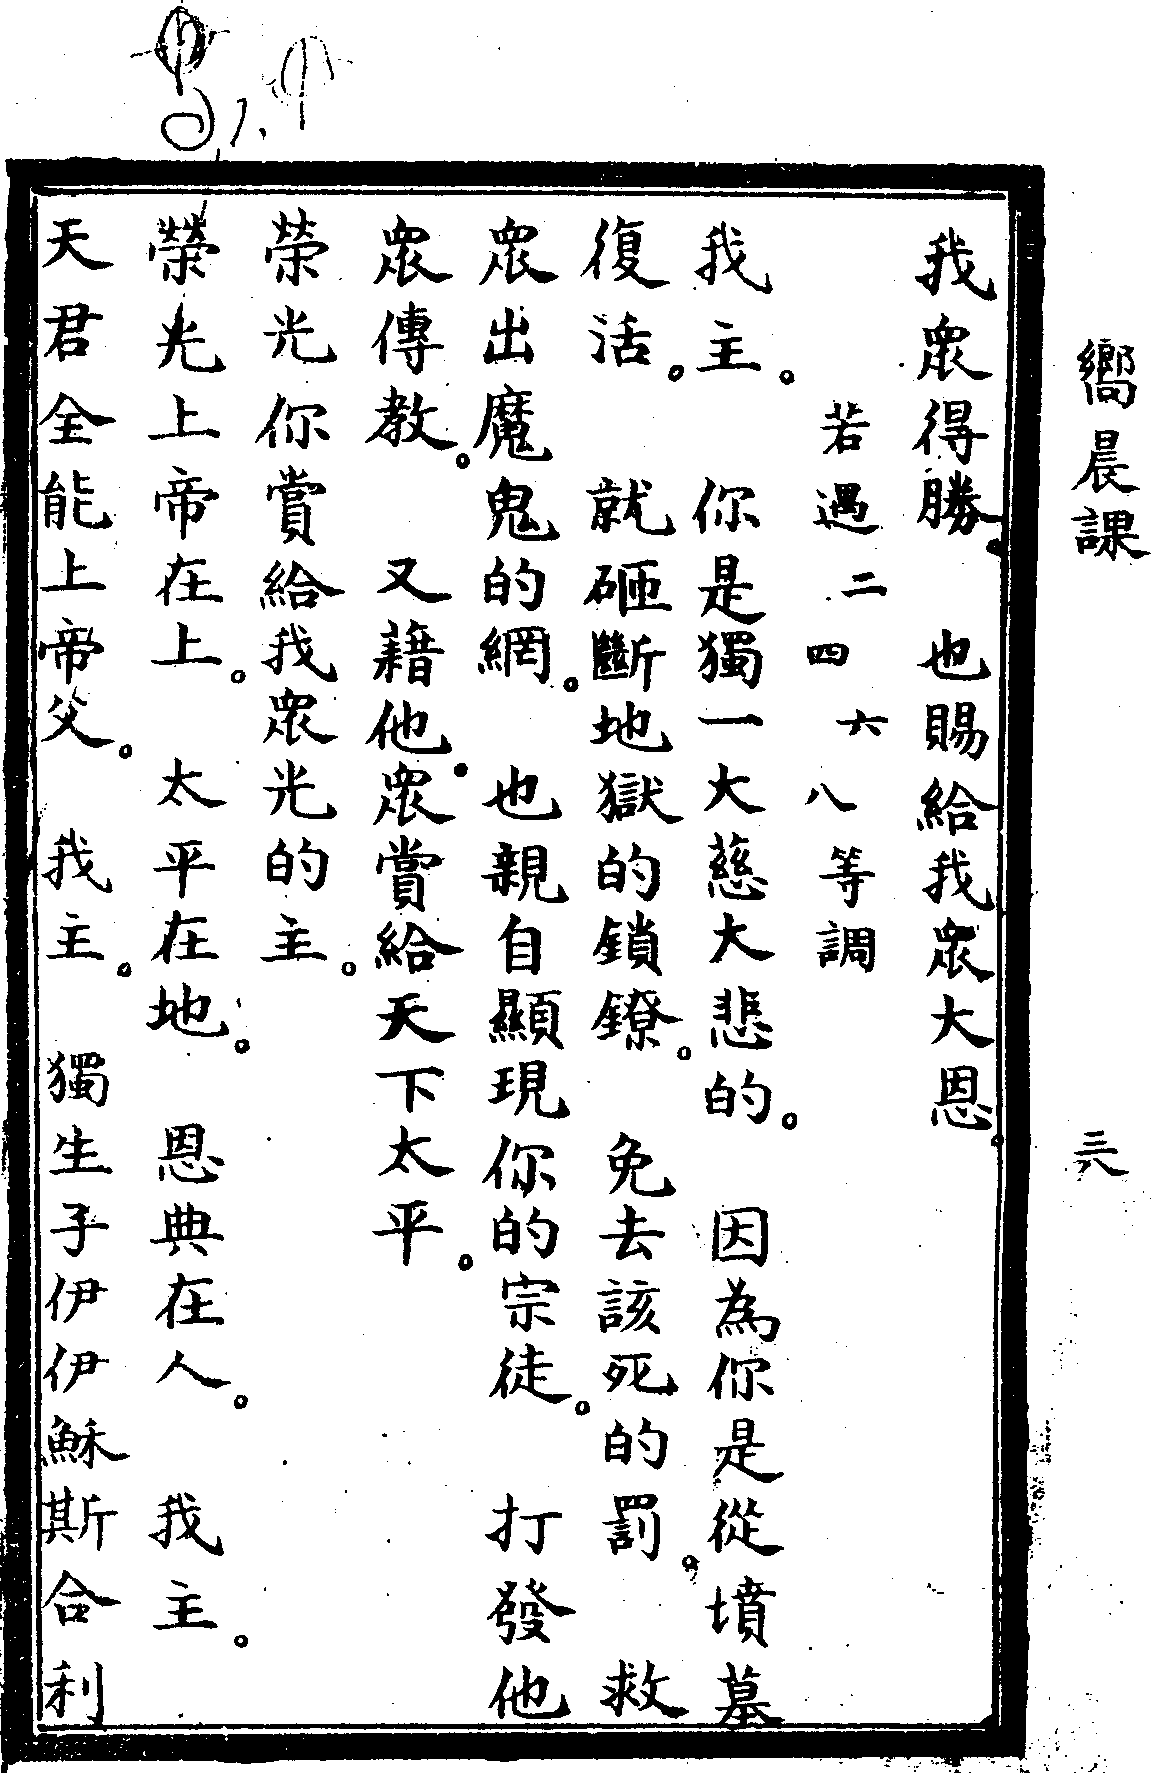 嚮晨課
三八
我衆得勝。也賜給我衆大恩。
若遇二四六八等調
我主。你是獨一大慈大悲的。因為你是從墳墓
復活。就砸斷地獄的鎖鐐。免去該死的罰。救
衆出魔鬼的網。也親自顯現你的宗徒。打發他
衆傳教。又藉他衆賞給天下太平。
荣光你賞給我衆光的主。
榮光上帝在上。太平在地。恩典在人。我主。
天君全能上帝父。我主。獨生子伊伊穌斯合利